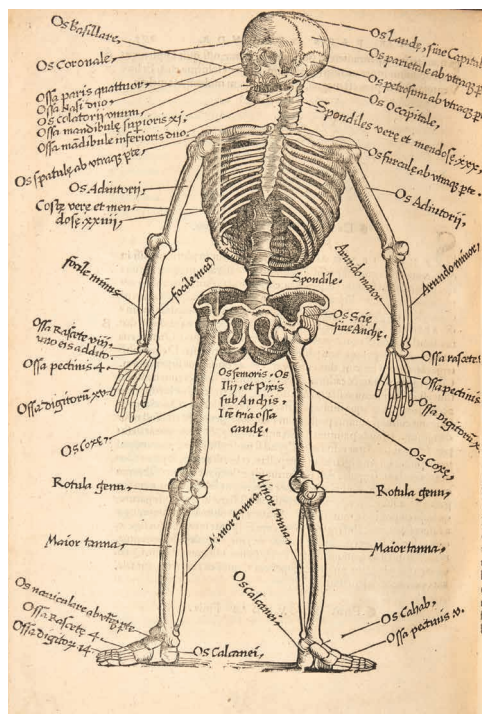 Os basillare,
Os Coronale,
Ossa paris quattuor
Ossa Nasi duo,
Os colatorij unum,
Ossa mandibule supioris xj,
Ossa mãdibule inferioris duo,
Os spatule ab utraq; pte,
Os Adiutorij,
Costę verę et men
dosę, xxiiij,
focile minus
focile maius
Ossa Rasete viij
uno eis addito,
Ossa pectinis 4,
Ossa digitorũ xv
Os Coxę,
Rotula genu,
Maior tanna,
Minor tanna,
Os naviculare ab utrã pte
Ossa Rasete 4
Ossa digitor 14
Os Calcanei,
Os Laudę, sive Capitis
Os parietale ab utraq;
Os petrosum ab utraq;
Os Occipitale,
Spondiles verę et mendosę, xxx,
Os furculę ab utraq; pte.
Os Adiutorij,
Arundo maior
Arundo minor,
Spondile.
Os Scię
sive Anchę,
Os femoris. Os
Ilij, et Pixis
sub Anchis,
Itẽ tria ossa
caudę.
Ossa rasete
Ossa pectinis
Ossa digitorũ
Os Coxę,
Rotula genu,
Minor tanna,
Maior tanna,
Os Calcanei,
Os Cahab,
Ossa pectinis v.